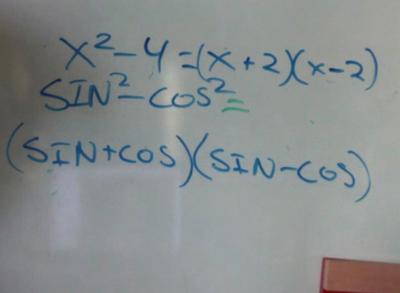 x²-4=(x+2)(x-2)
SIN²-COS²=
(SIN+COS)(SIN-COS)